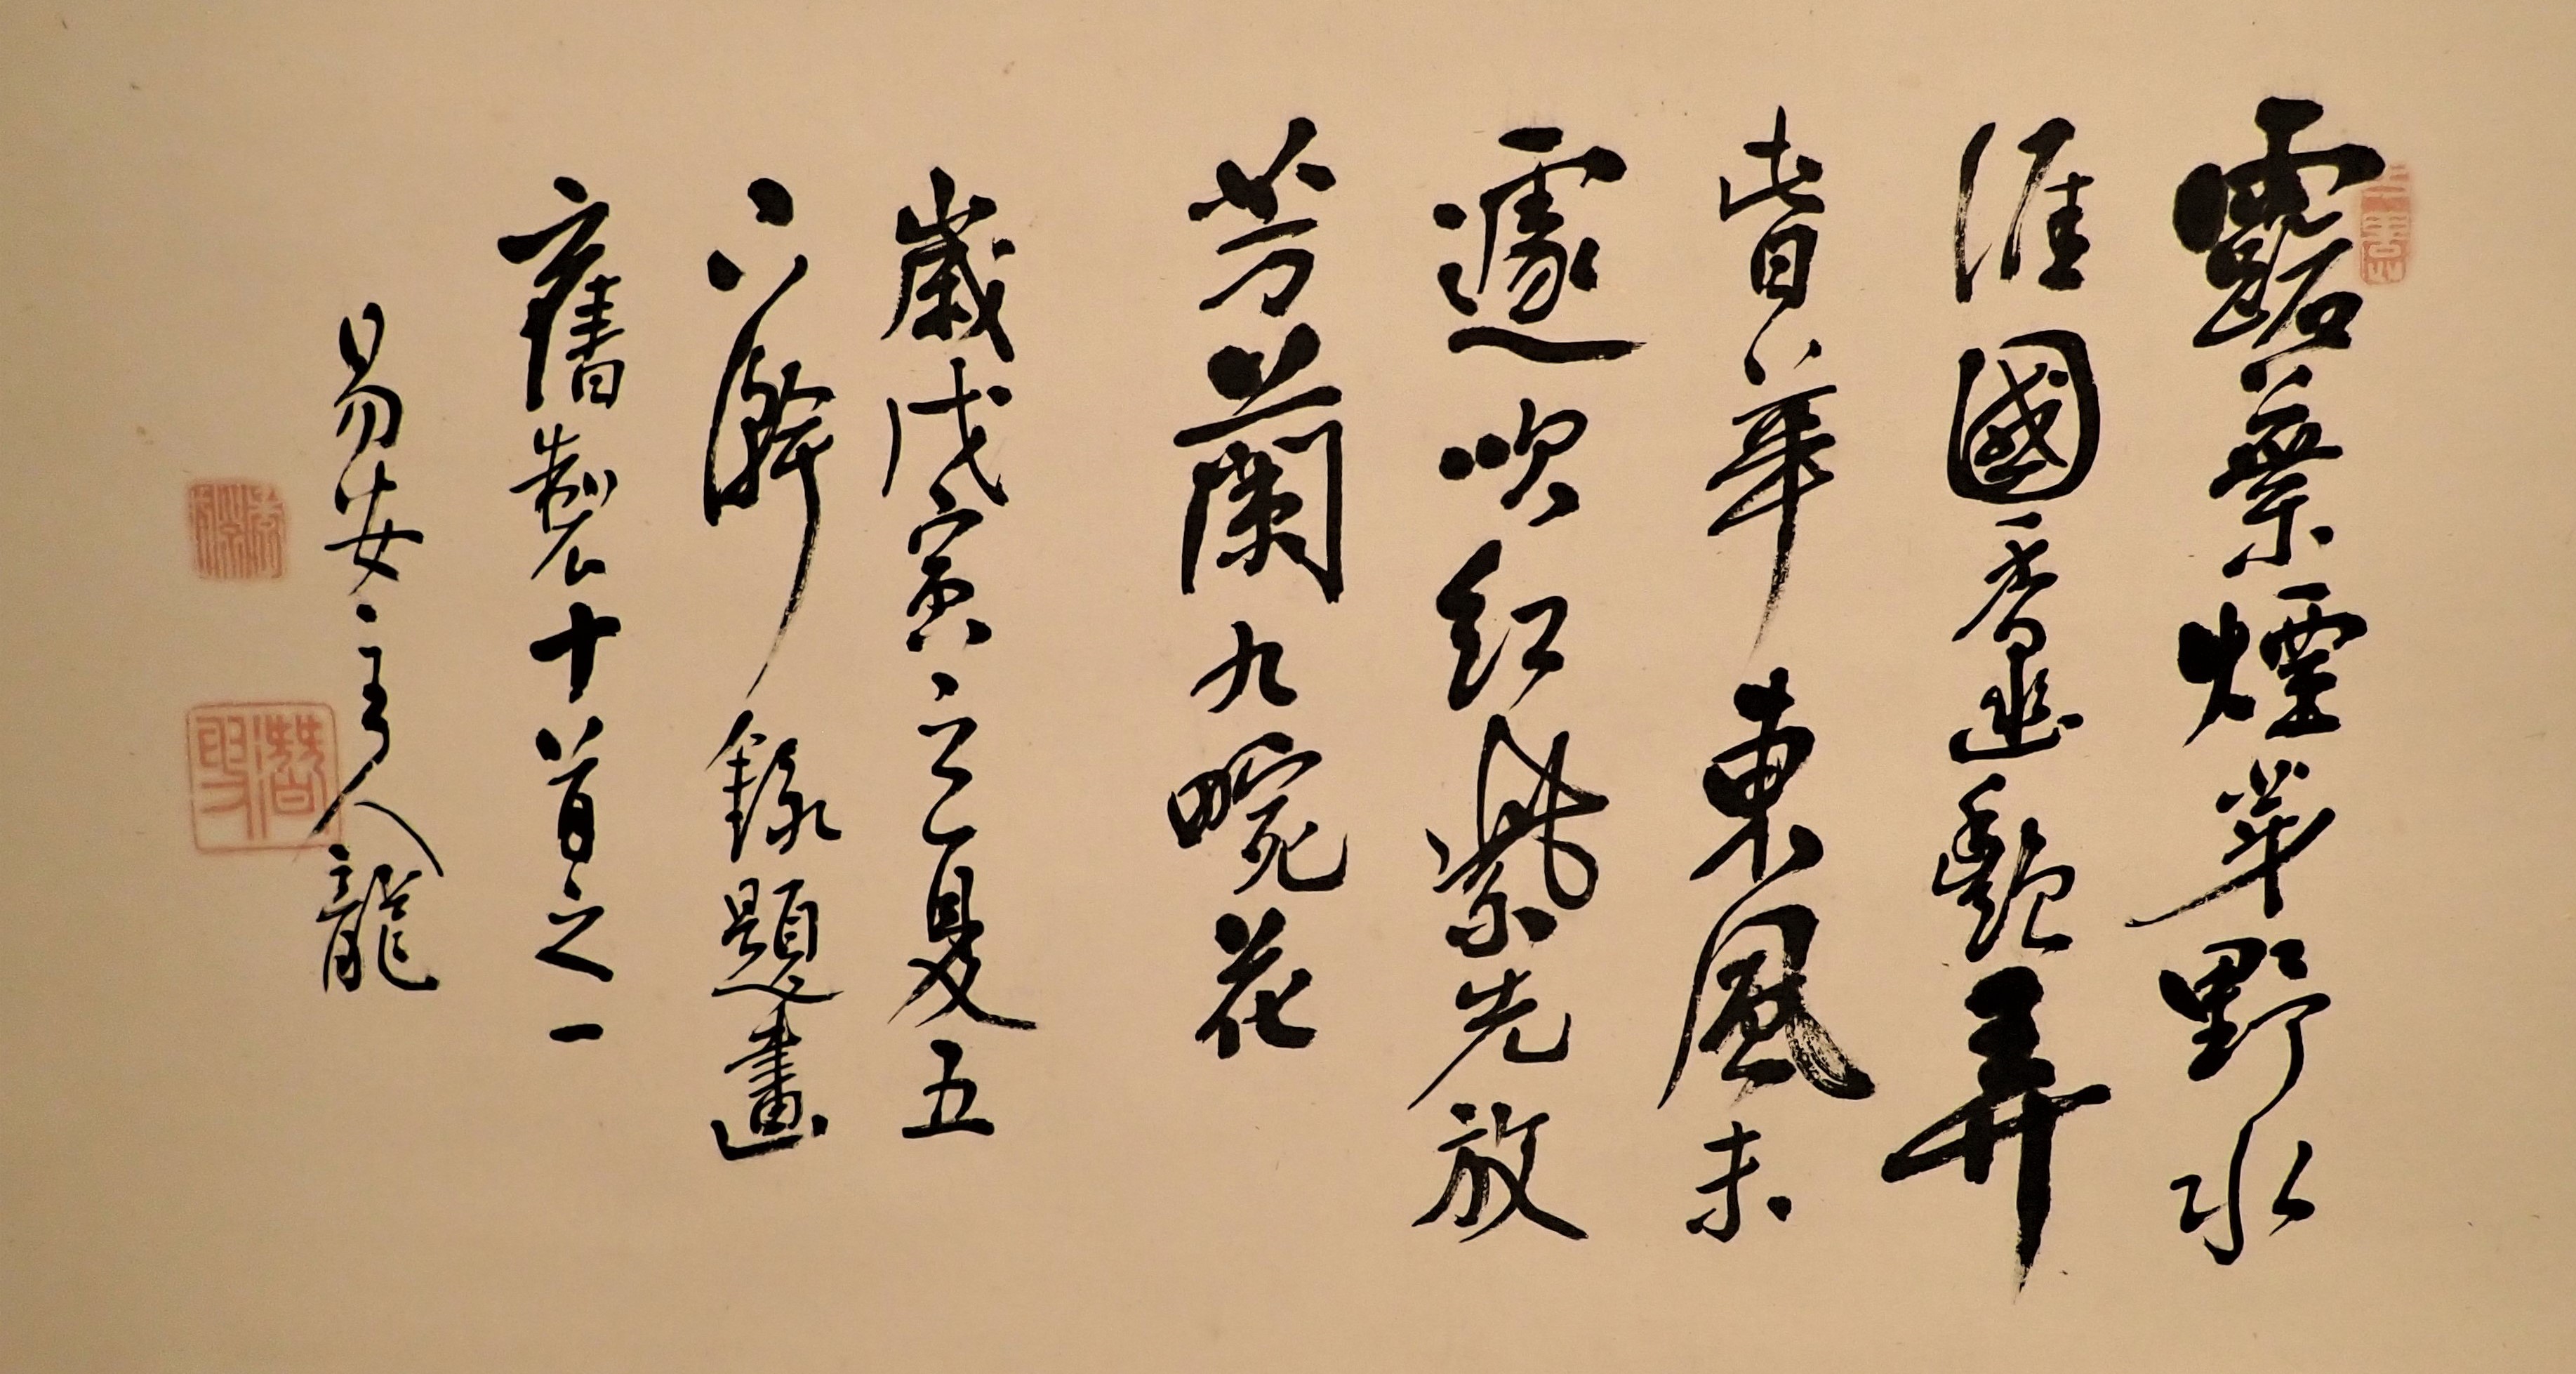 露葉煙華野水
涯國香幽艷弄
春華東風未
遽吹紅紫先放
芳蘭九畹花
歲戊寅之夏五
下澣錄題畫
舊製十首之一
易安主人龍